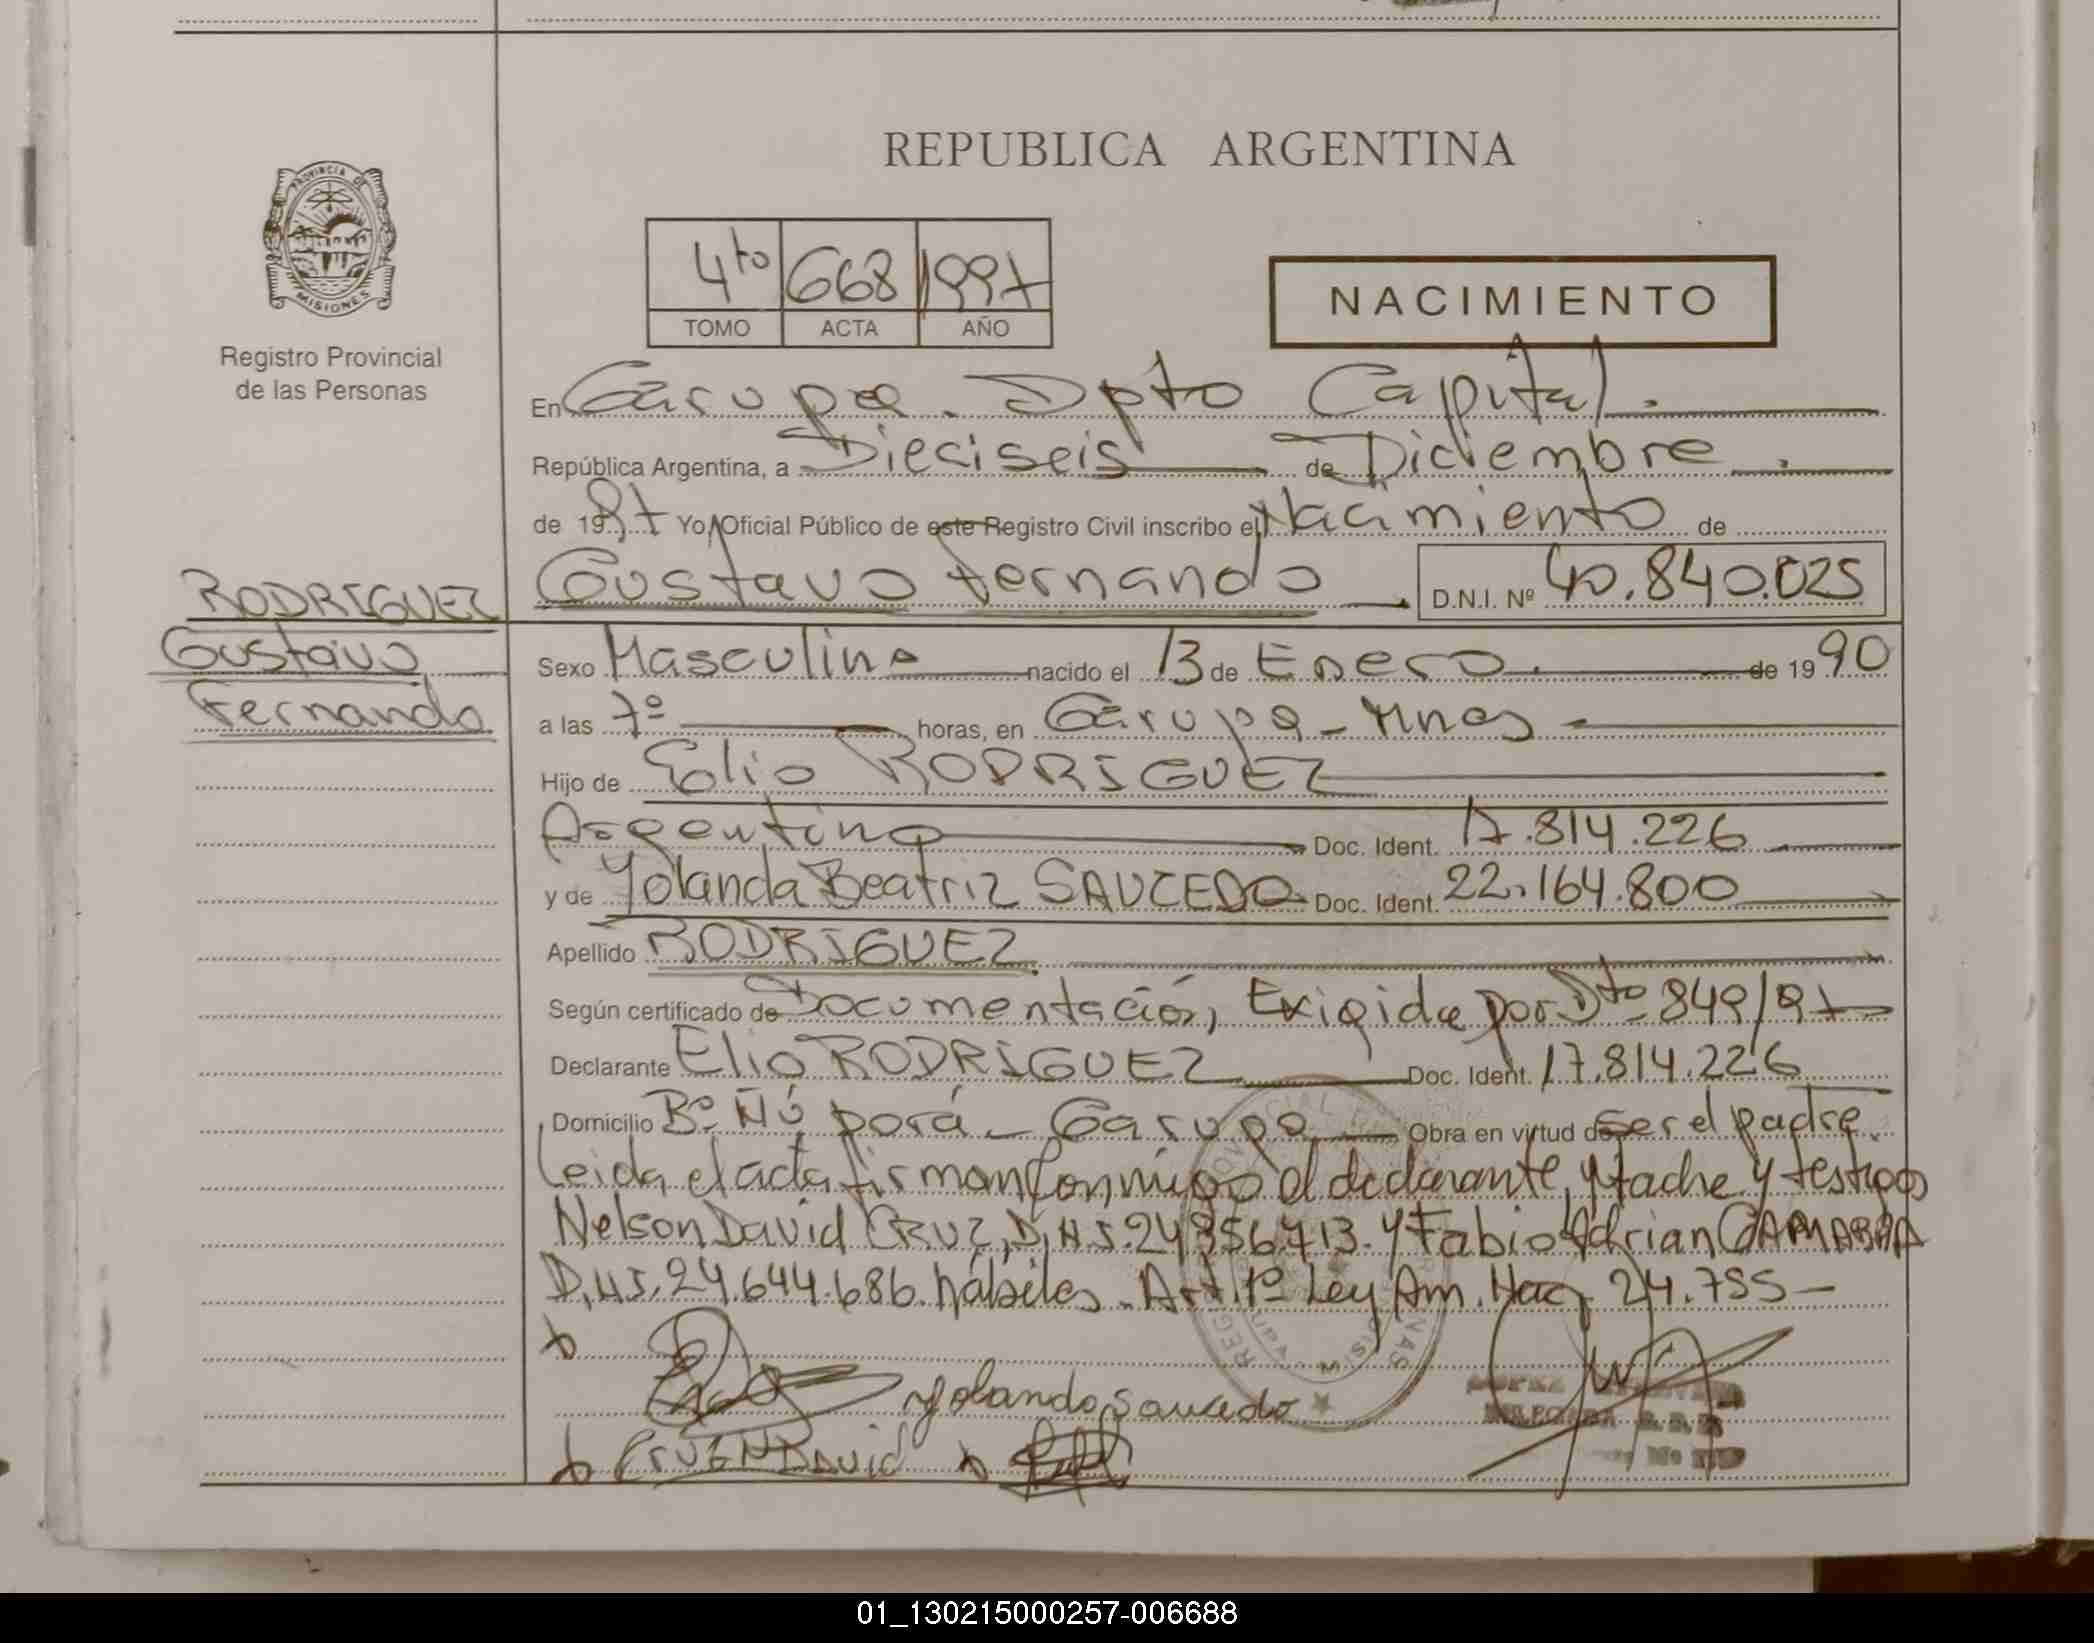 REPUBLICA ARGENTINA
PROVINCIA DE
MISIONES
Registro Provincial
de las Personas
4to 668 1997
TOMO ACTA AÑO
NACIMIENTO
En Garupa. Dpto Capital.
República Argentina, a Dieciseis de Diciembre.
de 1997 Yo, Oficial Público de este Registro Civil inscribo el Nacimiento de
Gustavo Fernando D.N.I. Nº 40.840.025
RODRIGUEZ
Gustavo
Fernando
Sexo Masculino nacido el 13 de Enero. de 1990
a las 7º horas, en Garupa - Mnes
Hijo de Elio RODRIGUEZ
Argentino Doc. Ident. 17.814.226
y de Yolanda Beatriz SAUCEDO Doc. Ident. 22.164.800
Apellido RODRIGUEZ
Según certificado de Documentación, Exigida por Dto 849/97
Declarante Elio RODRIGUEZ Doc. Ident. 17.814.226
Domicilio Bº Ñú porá - Garupa Obra en virtud de ser el padre.
Leida el acta firman conmigo el declarante, y testigos
Nelson David CRUZ, D.N.I. y Fabio Adrian
D.N.I. 24.644.686. hábiles. Art. 1º Ley Am. Nac. 24.755 -
Yolanda Saucedo
DAVID
01_130215000257-006688